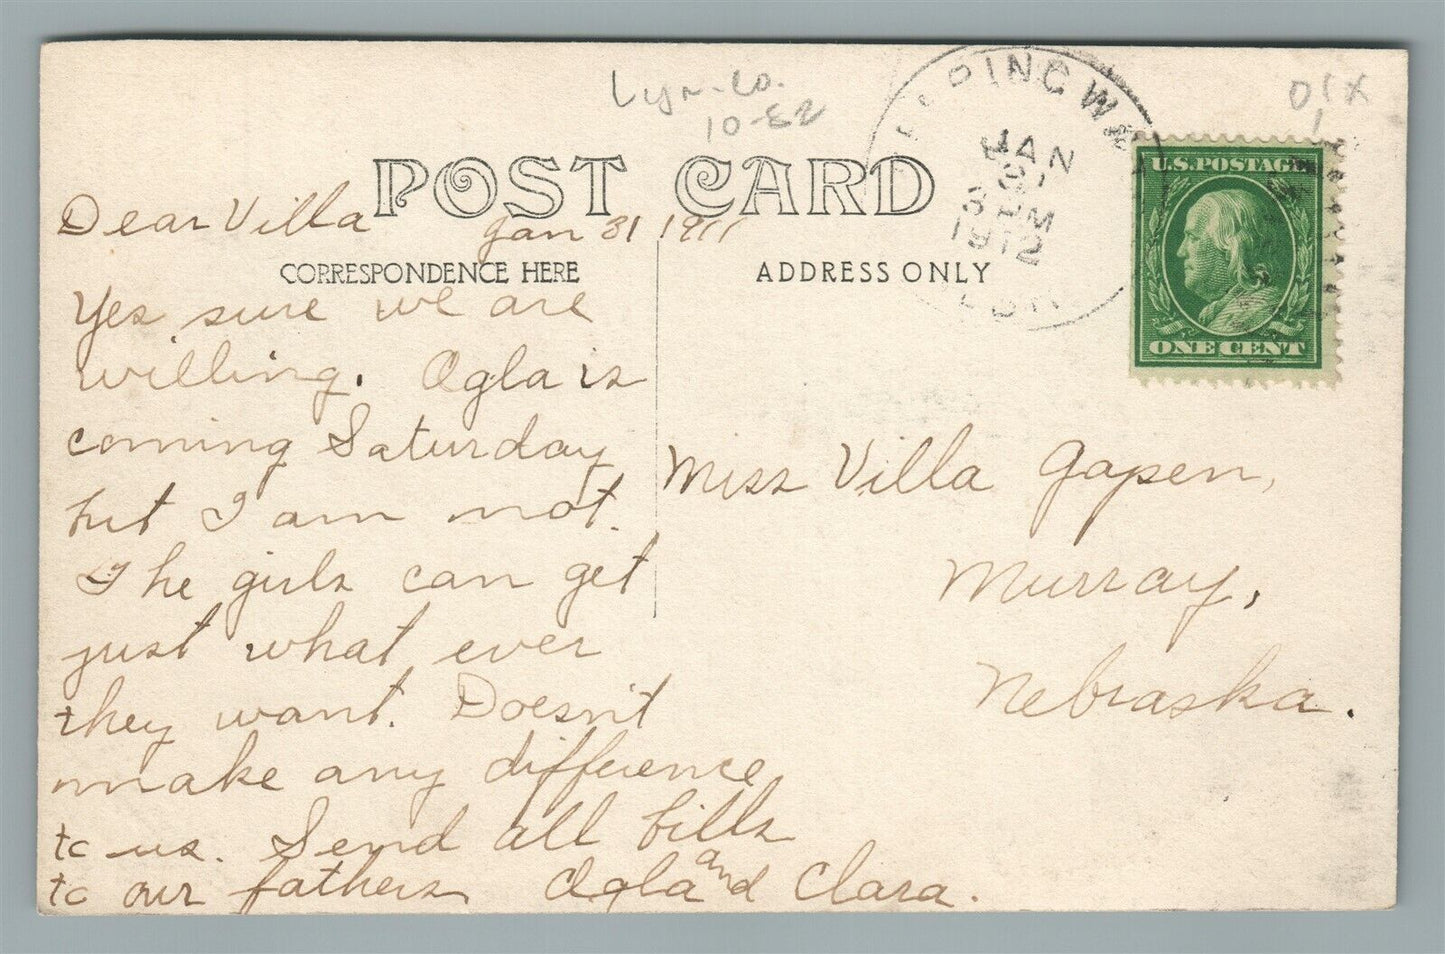 Lyn. Co.
10-82
POST CARD
JAN
31
3 PM
1912
U.S. POSTAGE
ONE CENT
Dear Villa Jan 31 1911
CORRESPONDENCE HERE
ADDRESS ONLY
Yes sure we are
willing. Ogla is
coming Saturday
but I am not.
The girls can get
just what ever
they want. Doesn't
make any difference
to us. Send all bills
to our fathers Ogla and Clara.
Miss Villa Gapen,
Murray,
Nebraska.